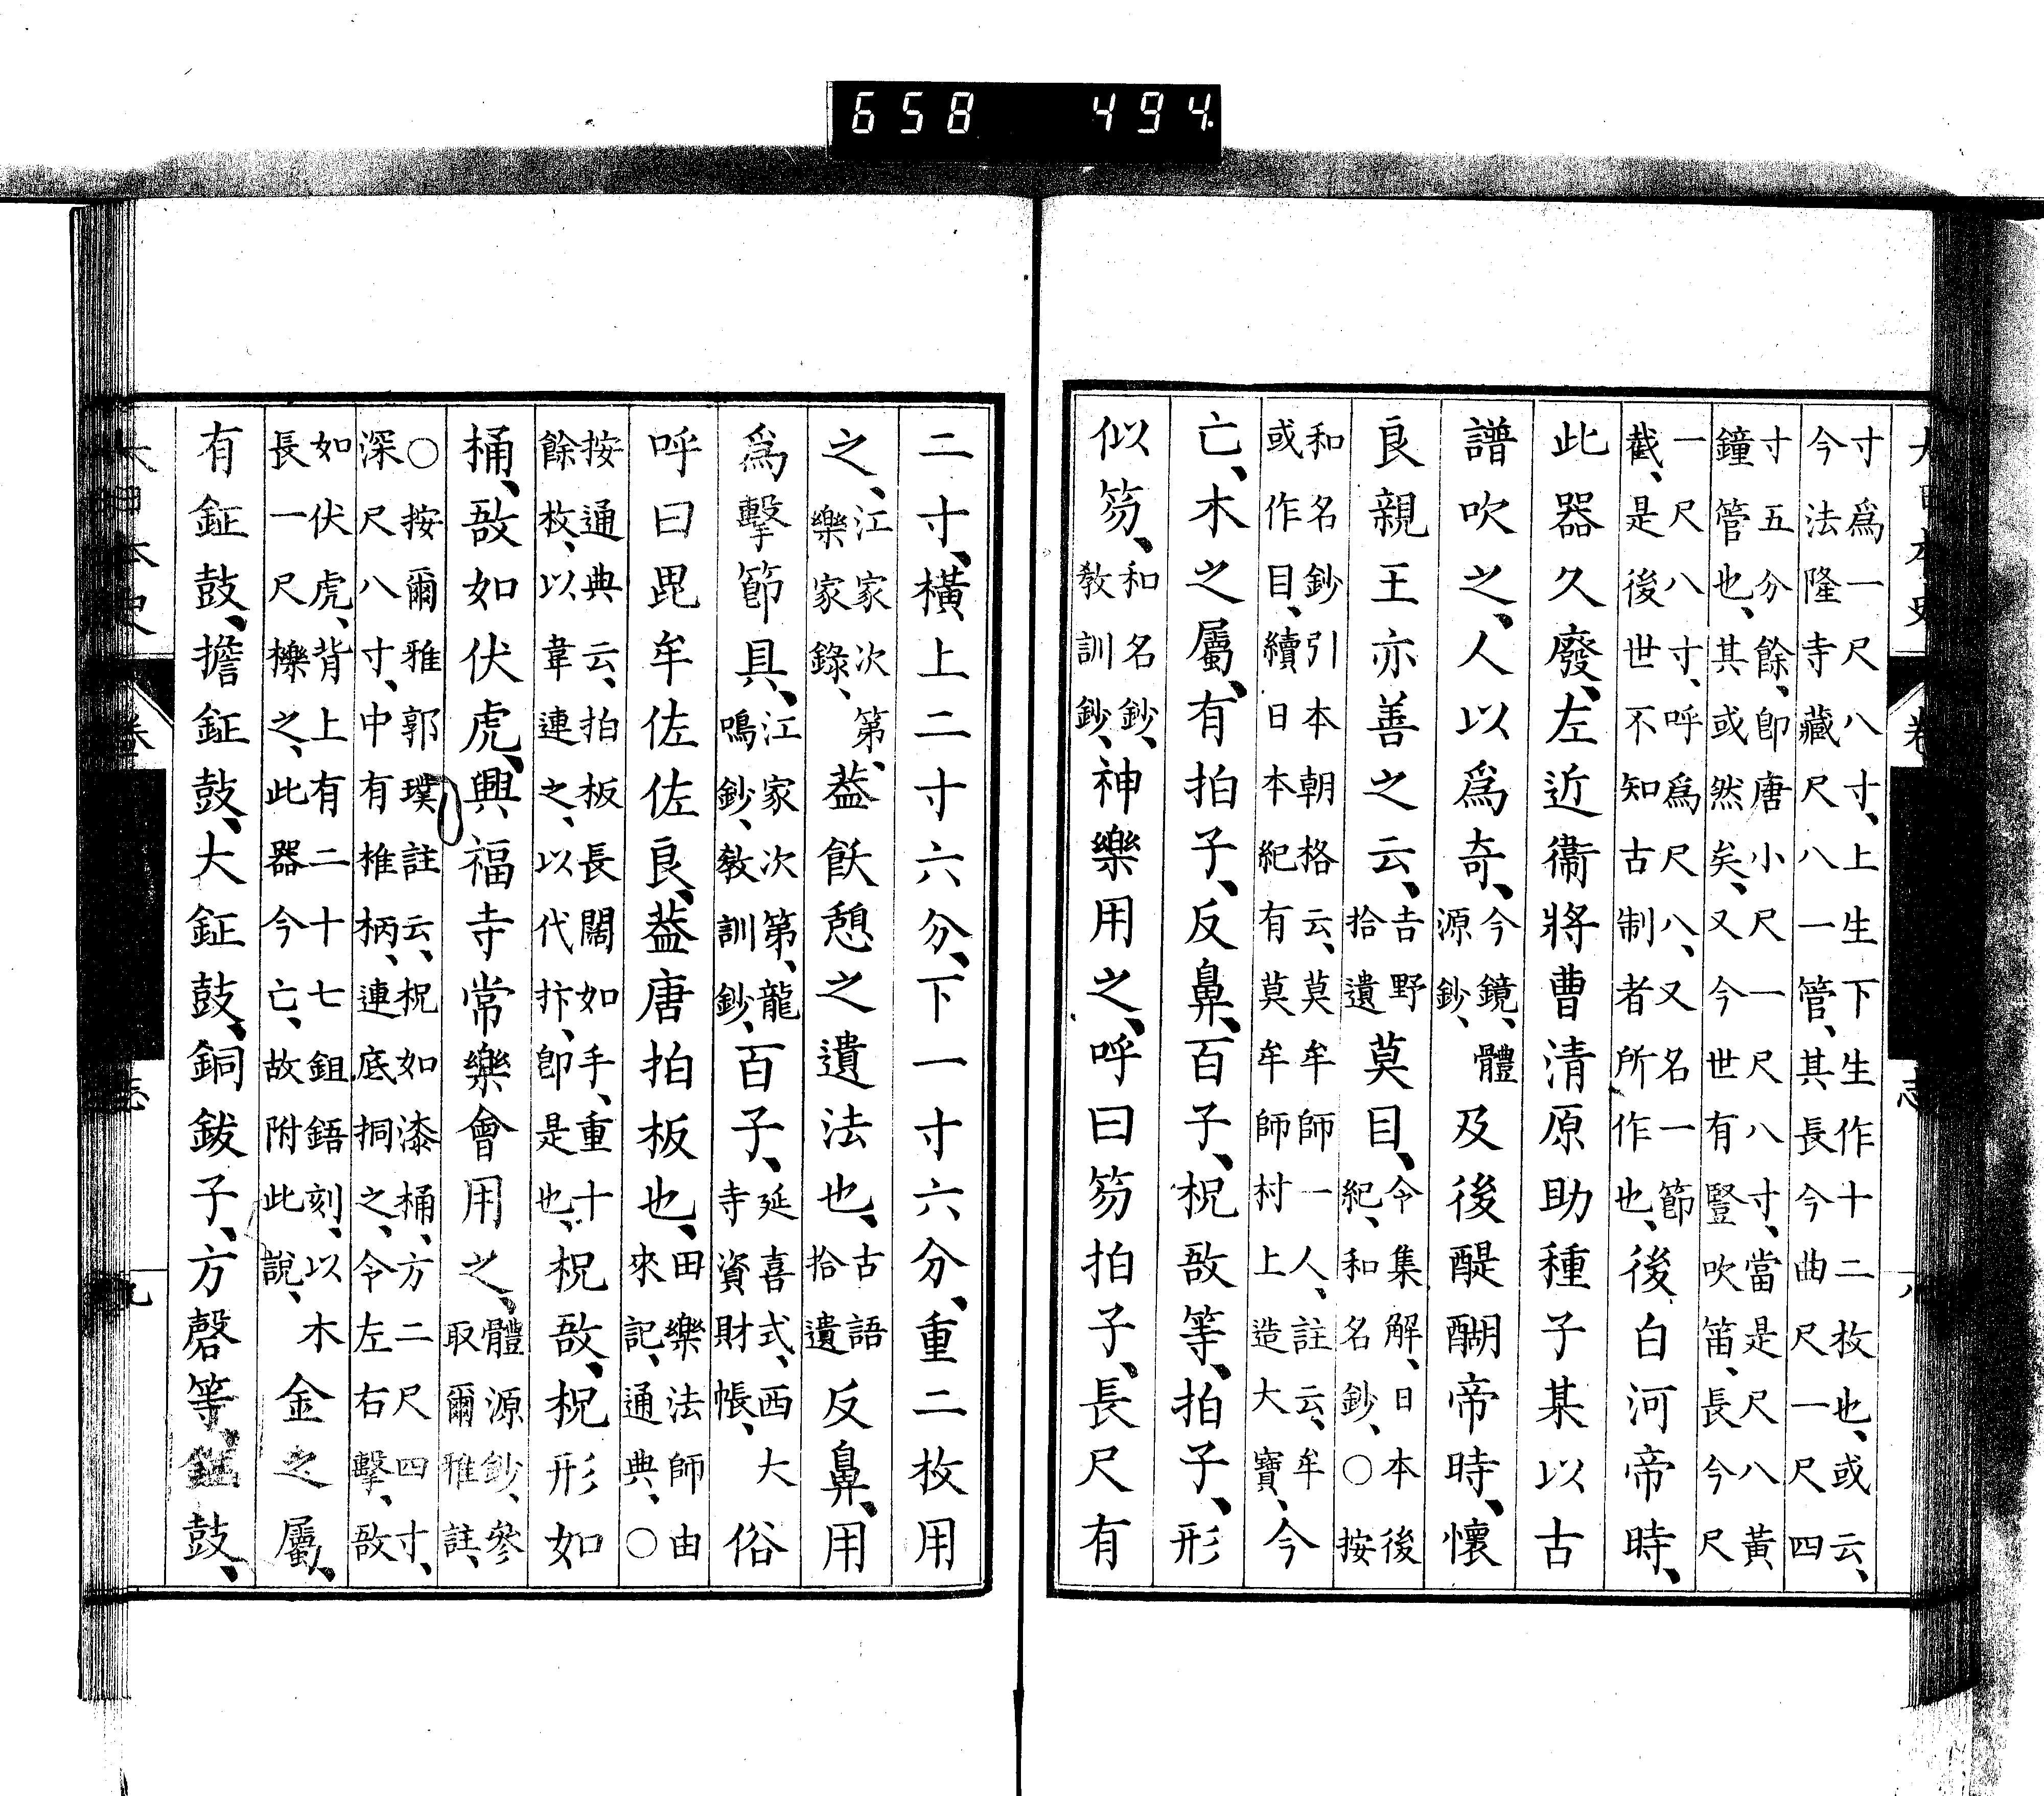 658 494
寸爲一尺八寸、上生下生作十二枚也、或云、
今法隆寺藏尺八一管、其長今曲尺一尺四
寸五分餘、卽唐小尺一尺八寸、當是尺八黃
鐘管也、其或然矣、又今世有豎吹笛、長今尺
一尺八寸、呼爲尺八、又名一節
截、是後世不知古制者所作也、
後白河帝時、
此器久廢、左近衞將曹淸原助種子某以古
譜吹之、人以爲奇、
今鏡、體
源鈔、
及後醍醐帝時、懷
良親王亦善之云、
吉野
拾遺
莫目、
令集解、日本後
紀、和名鈔、○按
和名鈔引本朝格云、莫牟師一人、註云、牟
或作目、續日本紀有莫牟師村上造大寶、
今
亡、木之屬、有拍子、反鼻、百子、柷敔等、拍子、形
似笏、
和名鈔、
敎訓鈔、
神樂用之、呼曰笏拍子、長尺有
二寸、橫上二寸六分、下一寸六分、重二枚用
之、
江家次第、
樂家錄、
葢飫憩之遺法也、
古語
拾遺
反鼻、用
爲擊節具、
江家次第、龍
鳴鈔、敎訓鈔、
百子、
延喜式、西大
寺資財帳、
俗
呼曰毘牟佐佐良、葢唐拍板也、
田樂法師由
來記、通典、○
按通典云、拍板長闊如手、重十
餘枚、以韋連之、以代抃、卽是也、
柷敔、柷形如
桶、敔如伏虎、興福寺常樂會用之、
體源鈔、參
取爾雅註、
○按爾雅郭璞註云、柷如漆桶、方二尺四寸、
深尺八寸、中有椎柄、連底挏之、令左右擊、敔
如伏虎、背上有二十七鉏鋙刻、以木
長一尺櫟之、此器今亡、故附此說、
金之屬、
有鉦鼓、擔鉦鼓、大鉦鼓、銅鈸子、方磬等、鉦鼓、